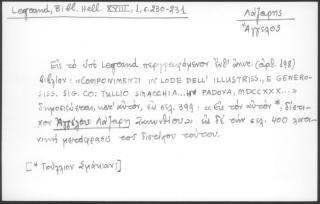 Legrand, Bibl. Hell. XVIII, 1, σ. 230-231
Λάζαρης
Ἄγγελος
Εἰς τὸ ὑπὸ Legrand περιγραφόμενον ἐνθ' ἀνωτ. (ἀρ. 198)
βιβλίον: «COMPONIMENTI IN LODE DELL' ILLUSTRISS., E GENERO-
SISS. SIG. CO: TULLIO SMACCHIA... IN PADOVA, MDCCXXX...»
δημοσιεύεται, κατ' αὐτόν, ἐν σελ. 399: «Εἰς τὸν αὐτὸν*, δίστι-
χον Ἀγγέλου Λάζαρη Ζακυνθίου» ἐν δὲ τῇ σελ. 400 λατι-
νικὴ μετάφρασις τοῦ διστίχου τούτου.
[* Τούλλιον Σμάκιαν]